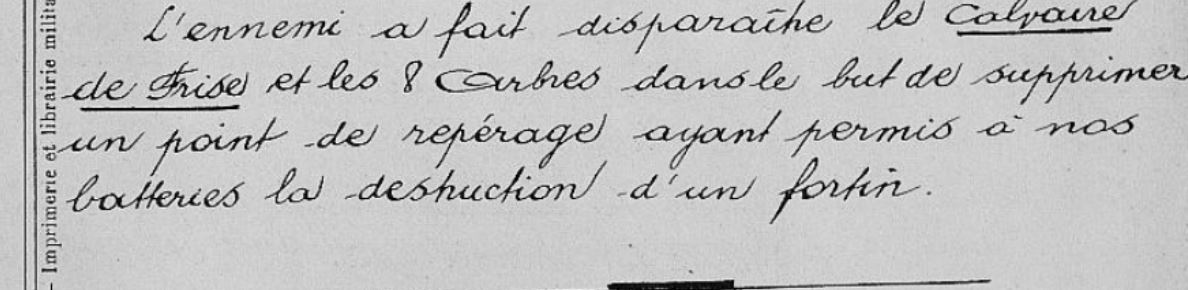 L'ennemi a fait disparaître le Calvaire
de Frise et les 8 Arbres dans le but de supprimer
un point de repérage ayant permis à nos
batteries la destruction d'un fortin.
- Imprimerie et librairie milita